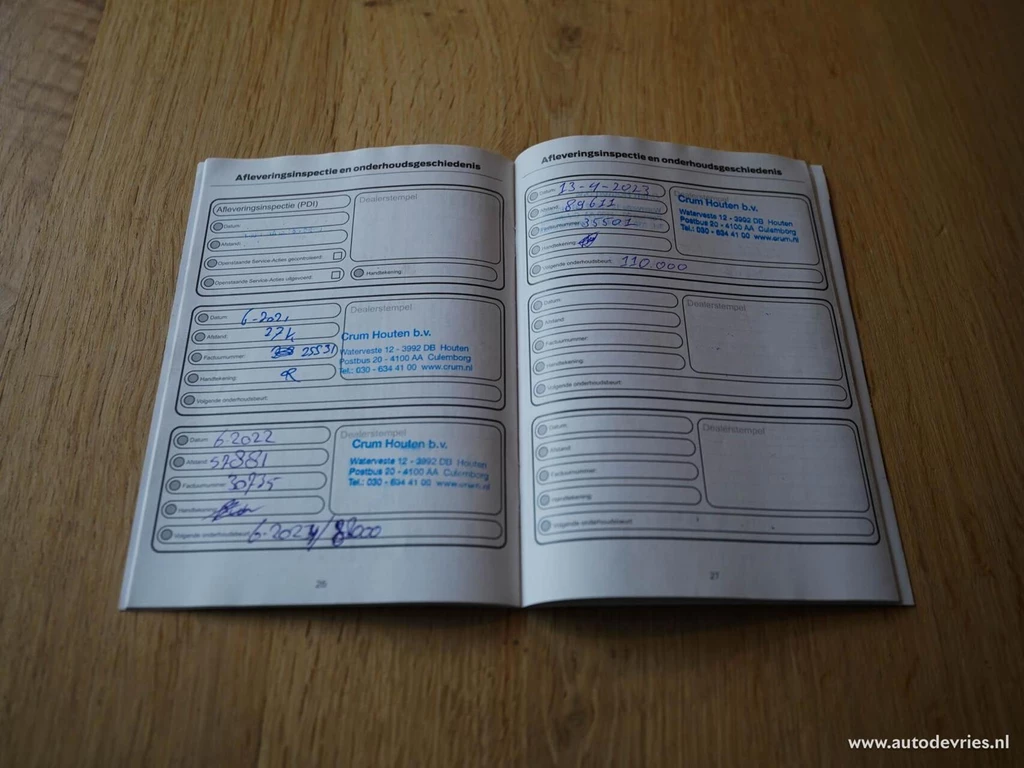 Afleveringsinspectie en onderhoudsgeschiedenis
Afleveringsinspectie (PDI)
Dealerstempel
Datum:
Afstand:
Openstaande Service-Acties gecontroleerd:
Openstaande Service-Acties uitgevoerd:
Handtekening:
Datum: 6-2021
Afstand: 27k
Factuurnummer: 25531
Handtekening:
Volgende onderhoudsbeurt:
Dealerstempel
Crum Houten b.v.
Waterveste 12 - 3992 DB Houten
Postbus 20 - 4100 AA Culemborg
Tel.: 030 - 634 41 00 www.crum.nl
Datum: 6-2022
Afstand: 57881
Factuurnummer: 30735
Handtekening:
Volgende onderhoudsbeurt:
Dealerstempel
Crum Houten b.v.
Waterveste 12 - 3992 DB Houten
Postbus 20 - 4100 AA Culemborg
Tel.: 030 - 634 41 00 www.crum.nl
26
Afleveringsinspectie en onderhoudsgeschiedenis
Datum: 13-9-2023
Afstand: 89611
Factuurnummer: 35501
Handtekening:
Volgende onderhoudsbeurt: 110.000
Crum Houten b.v.
Waterveste 12 - 3992 DB Houten
Postbus 20 - 4100 AA Culemborg
Tel.: 030 - 634 41 00 www.crum.nl
Datum:
Afstand:
Factuurnummer:
Handtekening:
Volgende onderhoudsbeurt:
Dealerstempel
Datum:
Afstand:
Factuurnummer:
Handtekening:
Volgende onderhoudsbeurt:
Dealerstempel
27
www.autodevries.nl